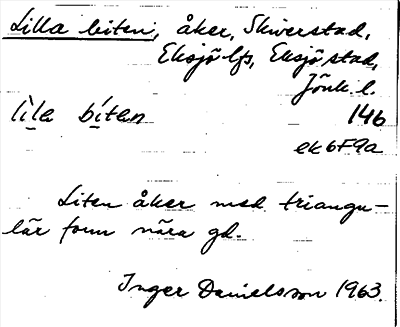 Lilla biten, åker, Skiverstad,
Eksjö lfs, Eksjö stad,
Jönk. l.
lìla bítan 14b
ek 6F9a
Liten åker med triangu-
lär form nära gd.
Inger Danielsson 1963.